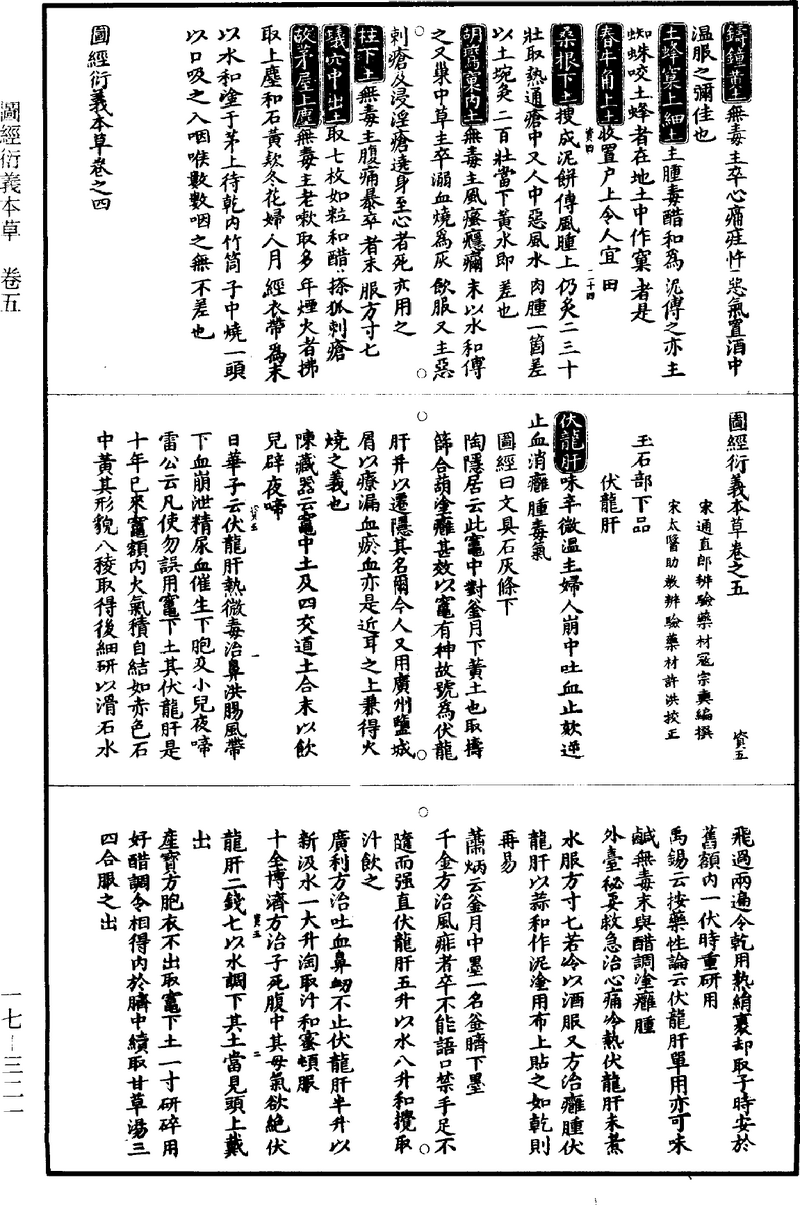 圖經衍義本草　卷五
一七—三二一
鑄鐘黃土無毒主卒心痛疰忤惡氣置酒中
溫服之彌佳也
土蜂窠上細土主腫毒醋和爲泥傅之亦主
蜘蛛咬土蜂者在地土中作窠者是
春牛角上土收置戶上令人宜田
資四　二十四
桑根下土搜成泥餅傅風腫上仍炙二三十
壯取熱通瘡中又人中惡風水肉腫一箇差
以土埦灸二百壯當下黃水即差也
胡鷰窠內土無毒主風瘙癮𤺋末以水和傅
之又巢中草主卒溺血燒爲灰飲服又主惡
刺瘡及浸淫瘡遶身至心者死亦用之
柱下土無毒主腹痛暴卒者末服方寸匕
蟻穴中出土取七枚如粒和醋搽狐刺瘡
故茅屋上塵無毒主老嗽取多年煙火者拂
取上塵和石黃款冬花婦人月經衣帶爲末
以水和塗于茅上待乾內竹筒子中燒一頭
以口吸之入咽喉數數咽之無不差也
圖經衍義本草卷之四
圖經衍義本草卷之五　資五
宋通直郎辨驗藥材寇宗奭編撰
宋太醫助教辨驗藥材許洪校正
玉石部下品
伏龍肝
伏龍肝味辛微溫主婦人崩中吐血止欬逆
止血消癰腫毒氣
圖經曰文具石灰條下
陶隱居云此竈中對釜月下黃土也取擣
篩合葫塗癰甚效以竈有神故號爲伏龍
肝并以遷隱其名爾今人又用廣州鹽城
屑以療漏血瘀血亦是近耳之上兼得火
燒之義也
陳藏器云竈中土及四交道土合末以飲
兒辟夜啼
資五　一
日華子云伏龍肝熱微毒治鼻洪腸風帶
下血崩泄精尿血催生下胞及小兒夜啼
雷公云凡使勿誤用竈下土其伏龍肝是
十年已來竈額內火氣積自結如赤色石
中黃其形貌八稜取得後細研以滑石水
飛過兩遍令乾用熟絹裹却取子時安於
舊額內一伏時重研用
禹錫云按藥性論云伏龍肝單用亦可味
鹹無毒末與醋調塗癰腫
外臺秘要救急治心痛冷熱伏龍肝末煮
水服方寸匕若冷以酒服又方治癰腫伏
龍肝以蒜和作泥塗用布上貼之如乾則
再易
蕭炳云釜月中墨一名釜臍下墨
千金方治風痱者卒不能語口噤手足不
隨而强直伏龍肝五升以水八升和攪取
汁飲之
廣利方治吐血鼻衂不止伏龍肝半升以
新汲水一大升淘取汁和蜜頓服
十全博濟方治子死腹中其母氣欲絕伏
資五　二
龍肝二錢匕以水調下其土當見頭上戴
出
產寶方胞衣不出取竈下土一寸研碎用
好醋調令相得內於臍中續取甘草湯三
四合服之出